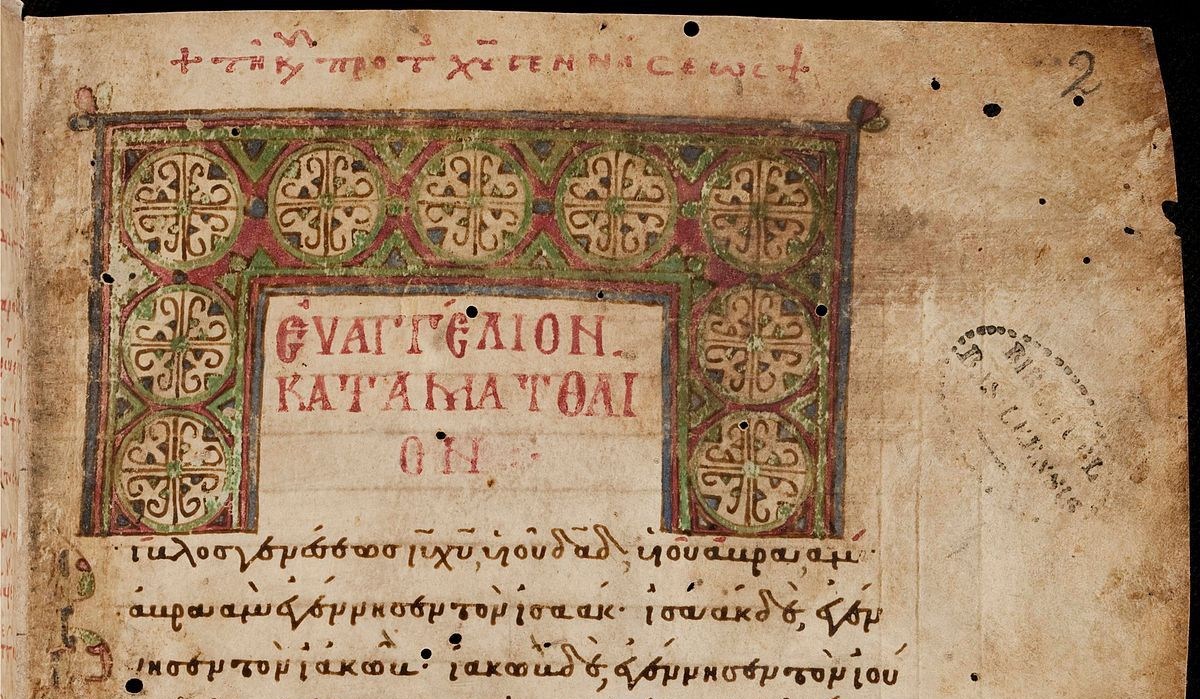 + τῆ κυ προ τ χυ γεννήσεως +
2
ΕΥΑΓΓΕΛΙΟΝ
ΚΑΤΑ ΜΑΤΘΑΙ
ΟΝ
βίβλος γενέσεως ιυ χυ, υἱοῦ δαδ, υἱοῦ ἀβραάμ·
ἀβραὰμ ἐγέννησεν τὸν ἰσαακ· ἰσαὰκ δὲ, ἐγέν
νησεν τὸν ἰακώβ· ἰακὼβ δὲ, ἐγέννησεν τὸν ἰού